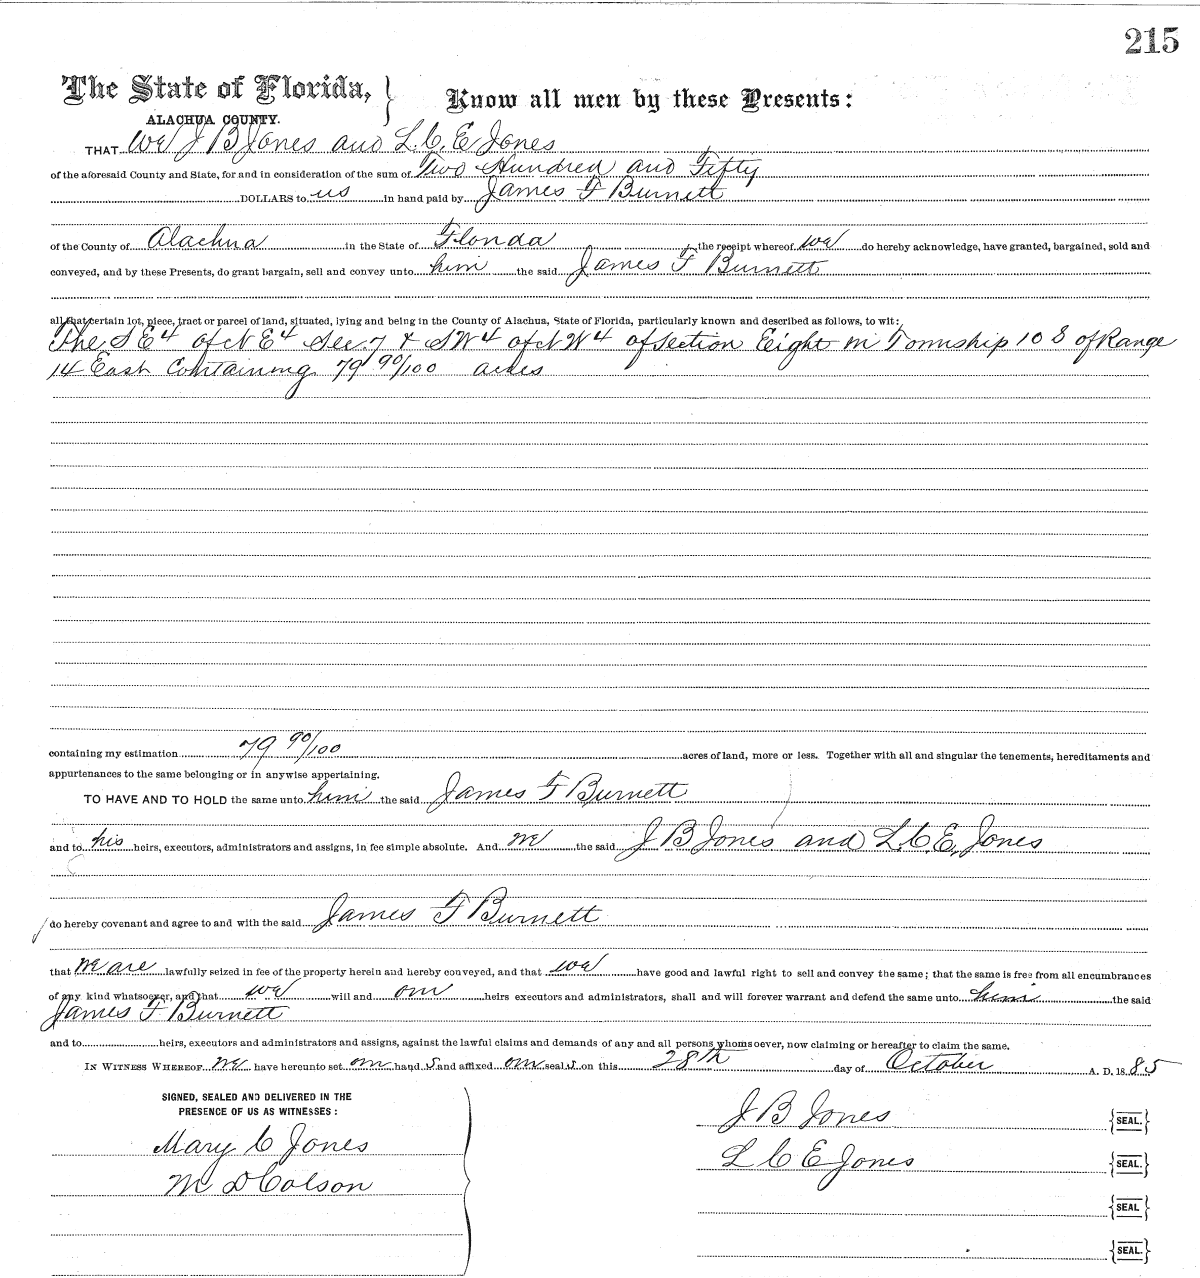 215
The State of Florida, } Know all men by these Presents:
ALACHUA COUNTY.
THAT We J B Jones and L. C. E Jones
of the aforesaid County and State, for and in consideration of the sum of Two Hundred and Fifty
DOLLARS to us in hand paid by James F Burnett
of the County of Alachua in the State of Florida the receipt whereof we do hereby acknowledge, have granted, bargained, sold and
conveyed, and by these Presents, do grant bargain, sell and convey unto him the said James F Burnett
all that certain lot, piece, tract or parcel of land, situated, lying and being in the County of Alachua, State of Florida, particularly known and described as follows, to wit:
The S E 4 of N E 4 Sec. 7 & S W 4 of N W 4 of Section Eight in Township 10 S of Range
14 East Containing 79 90/100 acres
containing my estimation 79 90/100 acres of land, more or less. Together with all and singular the tenements, hereditaments and
appurtenances to the same belonging or in anywise appertaining.
TO HAVE AND TO HOLD the same unto him the said James F Burnett
and to his heirs, executors, administrators and assigns, in fee simple absolute. And we the said J B Jones and L. C. E. Jones
do hereby covenant and agree to and with the said James F Burnett
that we are lawfully seized in fee of the property herein and hereby conveyed, and that we have good and lawful right to sell and convey the same; that the same is free from all encumbrances
of any kind whatsoever, and that we will and our heirs executors and administrators, shall and will forever warrant and defend the same unto him the said
James F Burnett
and to heirs, executors and administrators and assigns, against the lawful claims and demands of any and all persons whomsoever, now claiming or hereafter to claim the same.
IN WITNESS WHEREOF we have hereunto set our hand s and affixed our seal s on this 28th day of October A. D. 18 85
SIGNED, SEALED AND DELIVERED IN THE
PRESENCE OF US AS WITNESSES:
J B Jones {SEAL.}
Mary C Jones
L C E Jones {SEAL.}
M D Colson
{SEAL}
{SEAL.}